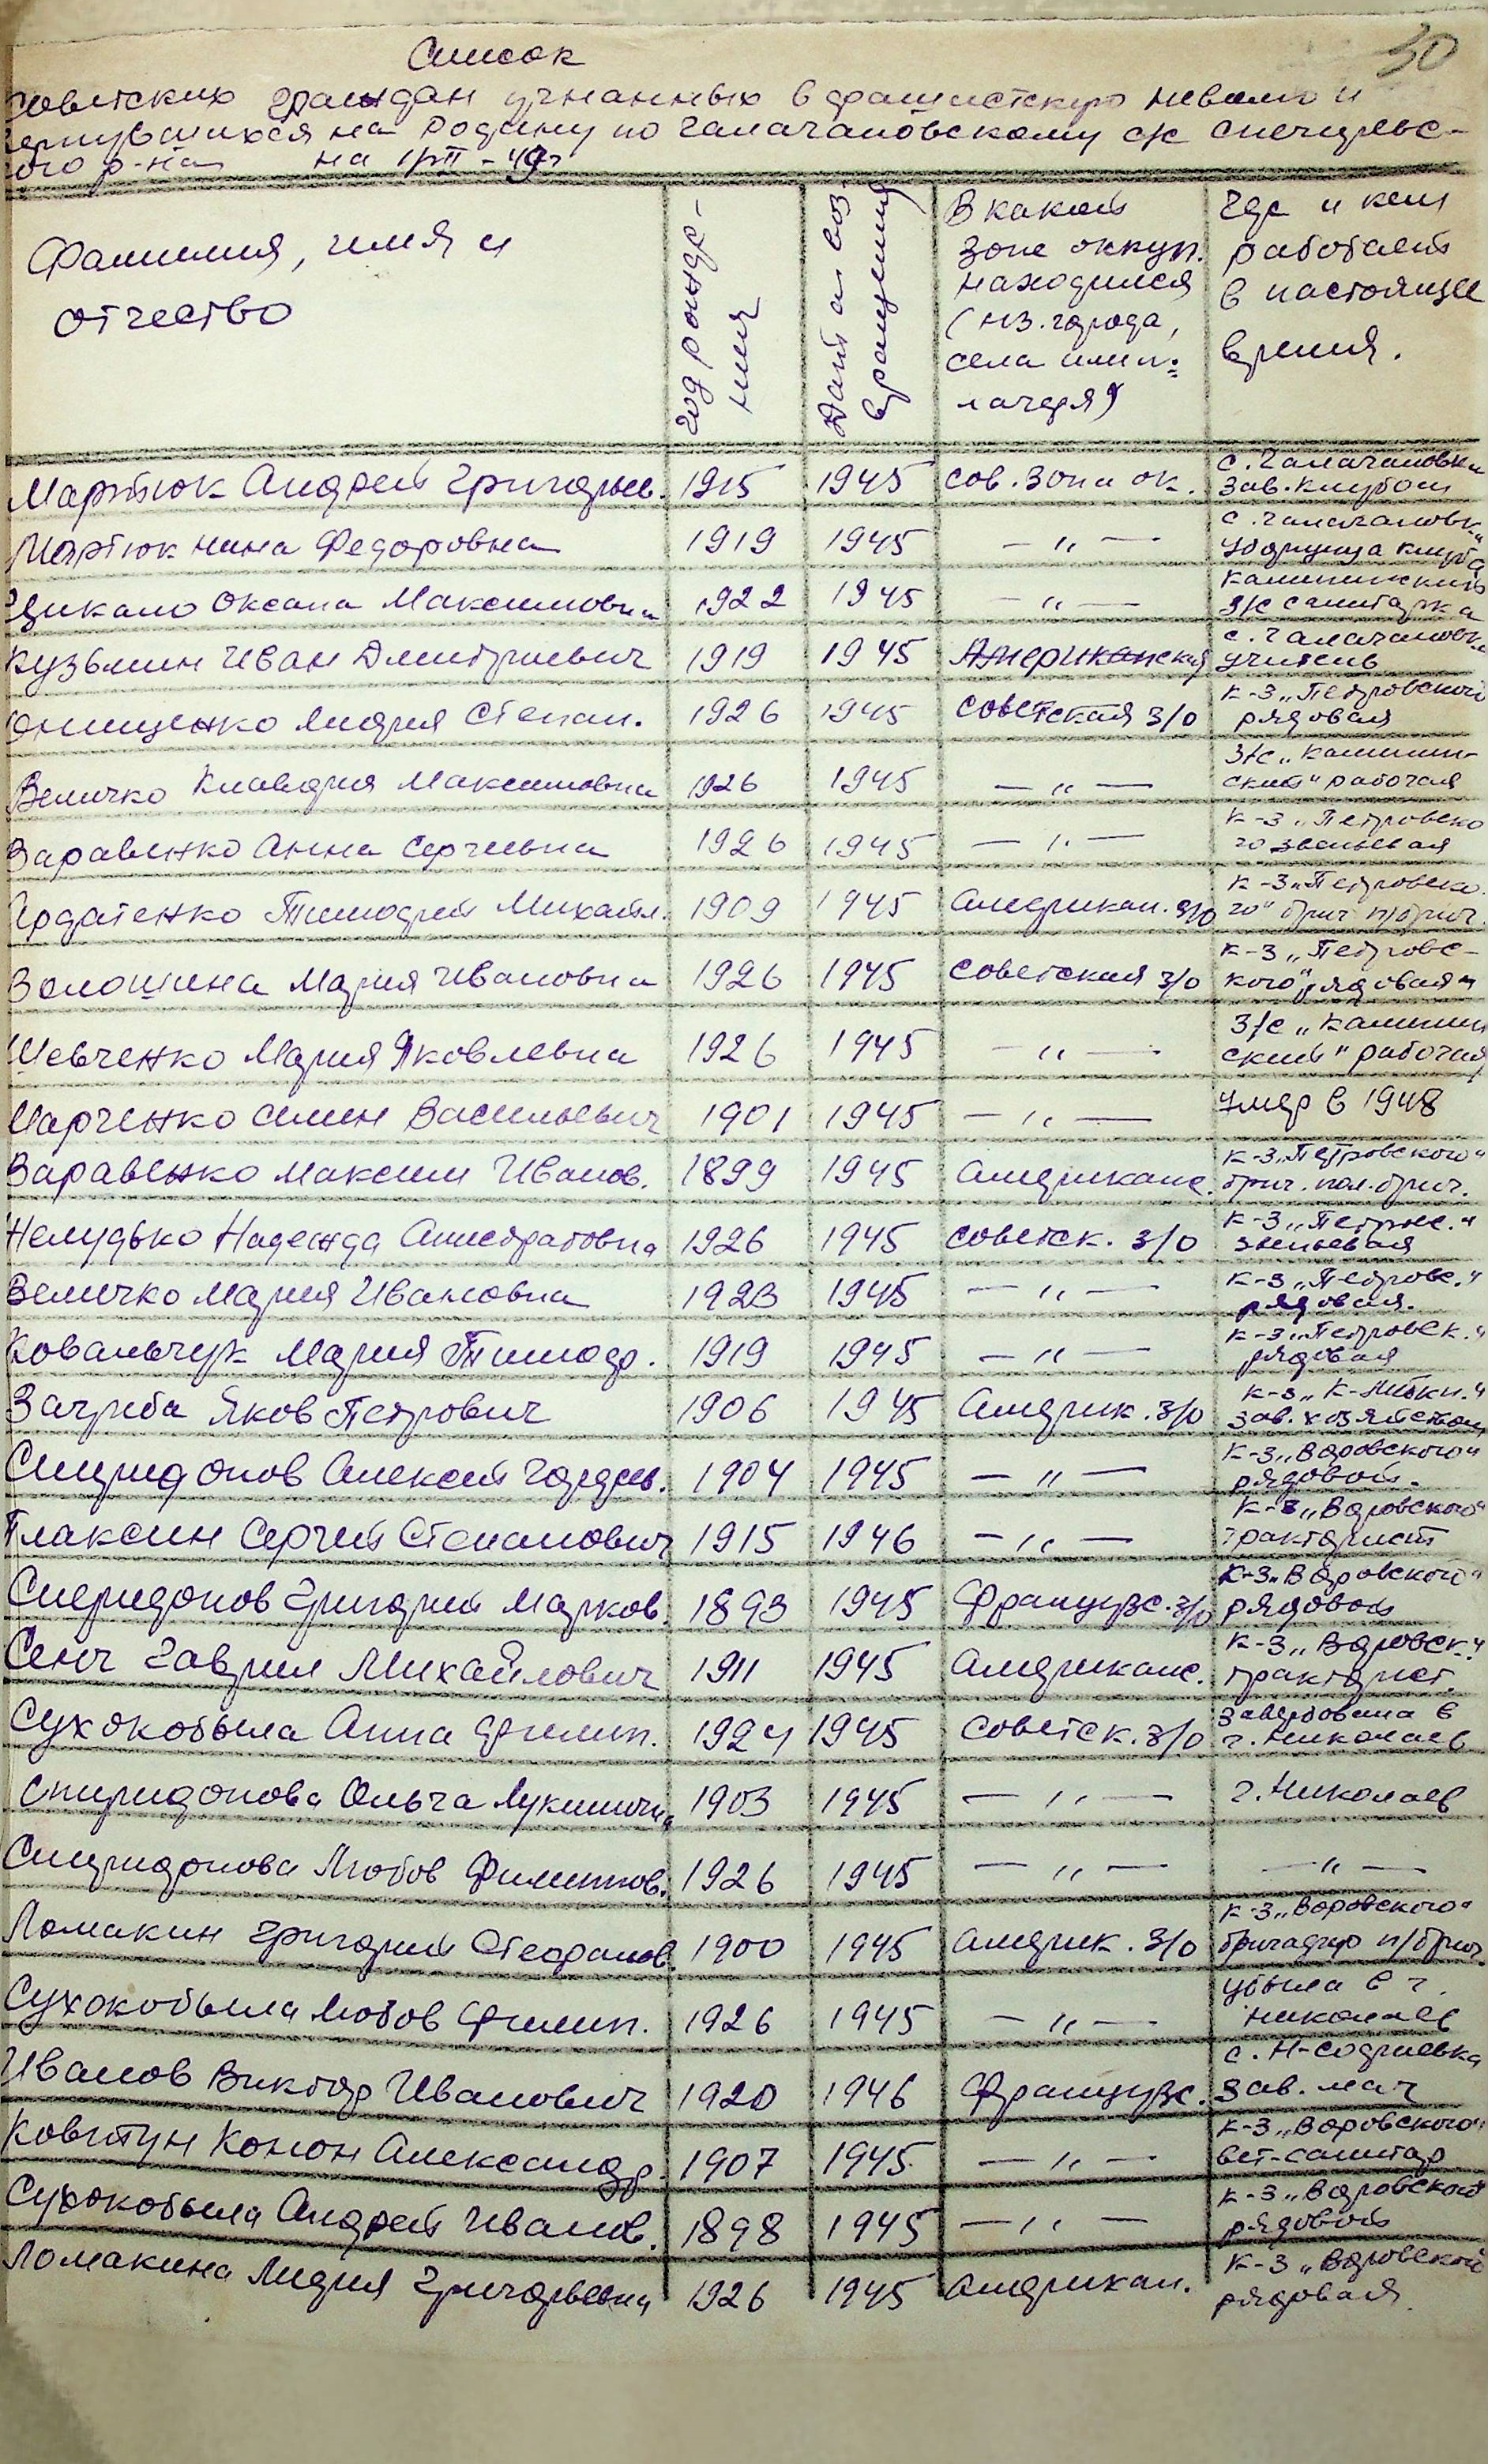 30
Список
советских граждан угнанных в фашистскую неволю и
вернувшихся на родину по Галагановскому с/с Снегиревс-
кого р-на на 1/VII-49г
Фамилия, имя и отчество
Год рожде-
ния
Дата воз-
вращения
В какой
зоне оккуп.
находился
(нз. города,
села или
лагеря)
Где и кем
работает
в настоящее
время.
Мартюк Андрей Григорьев. 1915 1945 сов. зона ок. с. Галагановка зав. клубом
Мартюк Нина Федоровна 1919 1945 — " — с. Галагановка уборщица клуба
Цикало Оксана Максимовна 1922 1945 — " — Калининский з/с санитарка
Кузьмин Иван Дмитриевич 1919 1945 Американская с. Галагановка учитель
Онищенко Лидия Степан. 1926 1945 советская з/о к-з „Петровского рядовая
Величко Клавдия Максимовна 1926 1945 — " — з/с „Калинин-
ский" рабочая
Заравенко Анна Сергеевна 1926 1945 — " — к-з „Петровско
го звеньевая
Тимофей Михайл. 1909 1945 Американ. з/о к-з „Петровско
го" бриг п/бриг.
Волошина Мария Ивановна 1926 1945 советская з/о к-з „Петровс-
кого" рядовая
Шевченко Мария Яковлевна 1926 1945 — " — з/с „Калинин
ский" рабочая
Марченко Семен Васильевич 1901 1945 — " — умер в 1948
Заравенко Максим Иванов. 1899 1945 Американс. к-з „Петровского"
бриг. пол. бриг.
Желудько Надежда Анистратовна 1926 1945 советск. з/о к-з „Петровс."
звеньевая
Величко Мария Ивановна 1923 1945 — " — к-з „Петровс."
рядовая.
Ковальчук Мария Тимофр. 1919 1945 — " — к-з „Петровск."
рядовая
Загриба Яков Петрович 1906 1945 Америк. з/о к-з „К-Либкн."
зав. хозяйством
Спиридонов Алексей Гордеев. 1904 1945 — " — к-з „Воровского"
рядовой.
Плаксин Сергей Степанович 1915 1946 — " — к-з „Воровского"
тракторист
Спиридонов Григорий Марков. 1893 1945 Французс. з/о к-з „Воровского"
рядовой
Сенч Гаврил Михайлович 1911 1945 Американс. к-з „Воровск."
тракторист.
Сухокобыла Анна Филип. 1924 1945 Советск. з/о завербована в
г. Николаев
Спиридонова Ольга Лукинична 1903 1945 — " — г. Николаев
Спиридонова Любов Филиппов. 1926 1945 — " — — " —
Ломакин Григорий Стефанов. 1900 1945 Америк. з/о к-з „Воровского"
бригадир п/бриг.
Сухокобыла Любов Филип. 1926 1945 — " — убыла в г.
Николаев
Иванов Виктор Иванович 1920 1946 Французс. с. Н-Софиевка
зав. маг
Ковтун Конон Александр. 1907 1945 — " — к-з „Воровского"
вет-санитар
Сухокобыла Андрей Иванов. 1898 1945 — " — к-з „Воровской
рядовой
Ломакина Лидия Григорьевна 1926 1945 Американ. к-з „Воровской
рядовая